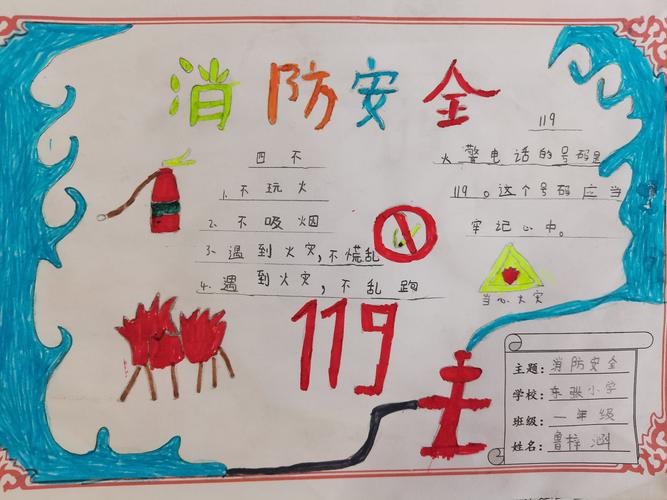 消防安全
四不
1、不玩火
2、不吸烟
3、遇到火灾,不慌乱
4、遇到火灾,不乱跑
119
119
火警电话的号码是
119。这个号码应当
牢记心中。
当心火灾
主题:消防安全
学校:东张小学
班级:一年级
姓名:鲁梓涵